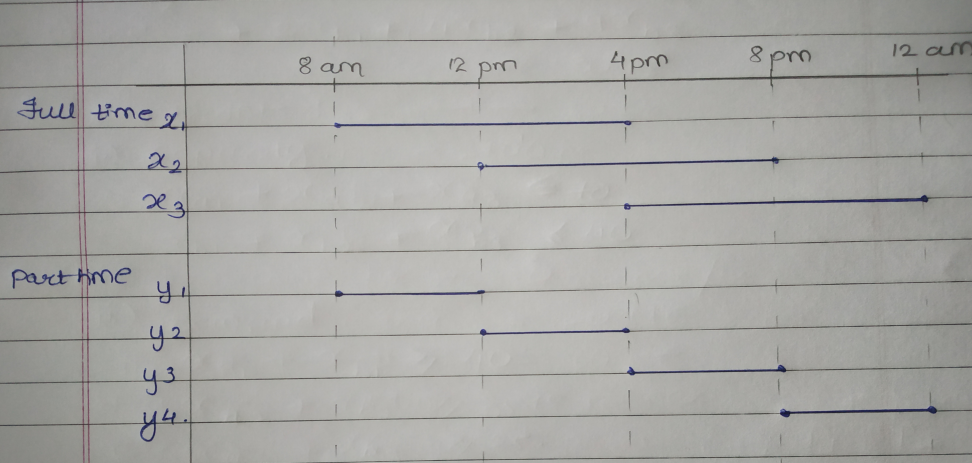 8 am 12 pm 4 pm 8 pm 12 am
Full time x1
x2
x3
Part time
y1
y2
y3
y4.